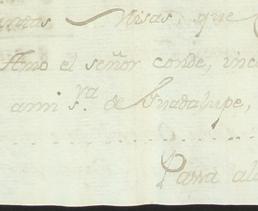 Misas, que
Amo el señor conde, inc
ami s.ra de Guadalupe,
Para al